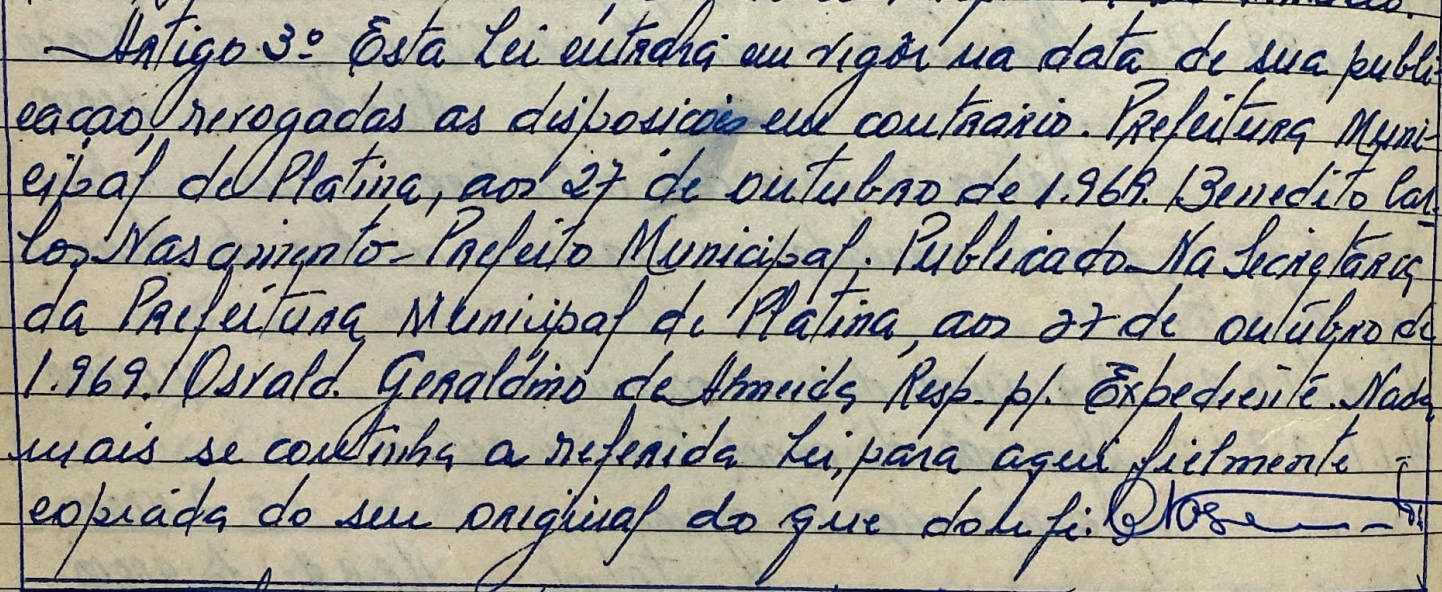 Artigo 3º Esta Lei entrará em vigôr na data de sua publi-
cação, revogadas as disposicois em contrario. Prefeitura Muni-
cipal de Platina, aos 27 de outubro de 1.969. Benedito Car-
los Nascimento - Prefeito Municipal. Publicado Na Secretaria
da Prefeitura Municipal de Platina, aos 27 de outubro de
1.969. Osvald. Geraldino de Almeida, Resp. p/. Expediente. Nada
mais se continha a referida Lei, para aqui fielmente
copiada do seu original do que dou fé.